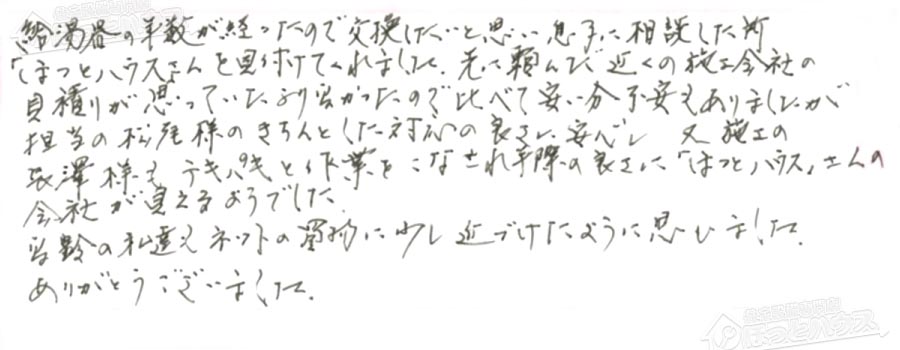 給湯器の年数が経ったので交換したいと思い息子に相談した所
「ほっとハウス」さんを見付けてくれました。先に頼んだ近くの施工会社の
見積りが思っていたより高かったので比べて安い分不安もありましたが
担当の松尾様のきちんとした対応の良さに安心し 又施工の
長澤様もテキパキと作業をこなされ手際の良さに「ほっとハウス」さんの
会社が見えるようでした
高齢の私達もネットの買物に少し近づけたように思いました。
ありがとうございました。
ほっとハウス